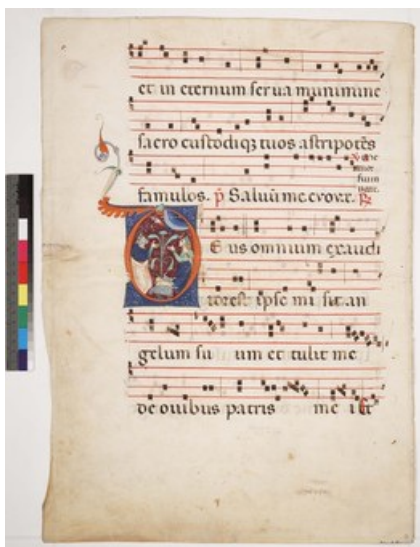 et in eternum serua munimine
sacro custodiq; tuos astripotēs
famulos. p̄ Saluū me
D eus omnium exaudi
tor est ipse misit an
gelum su um et tulit me
de ouibus patris me i